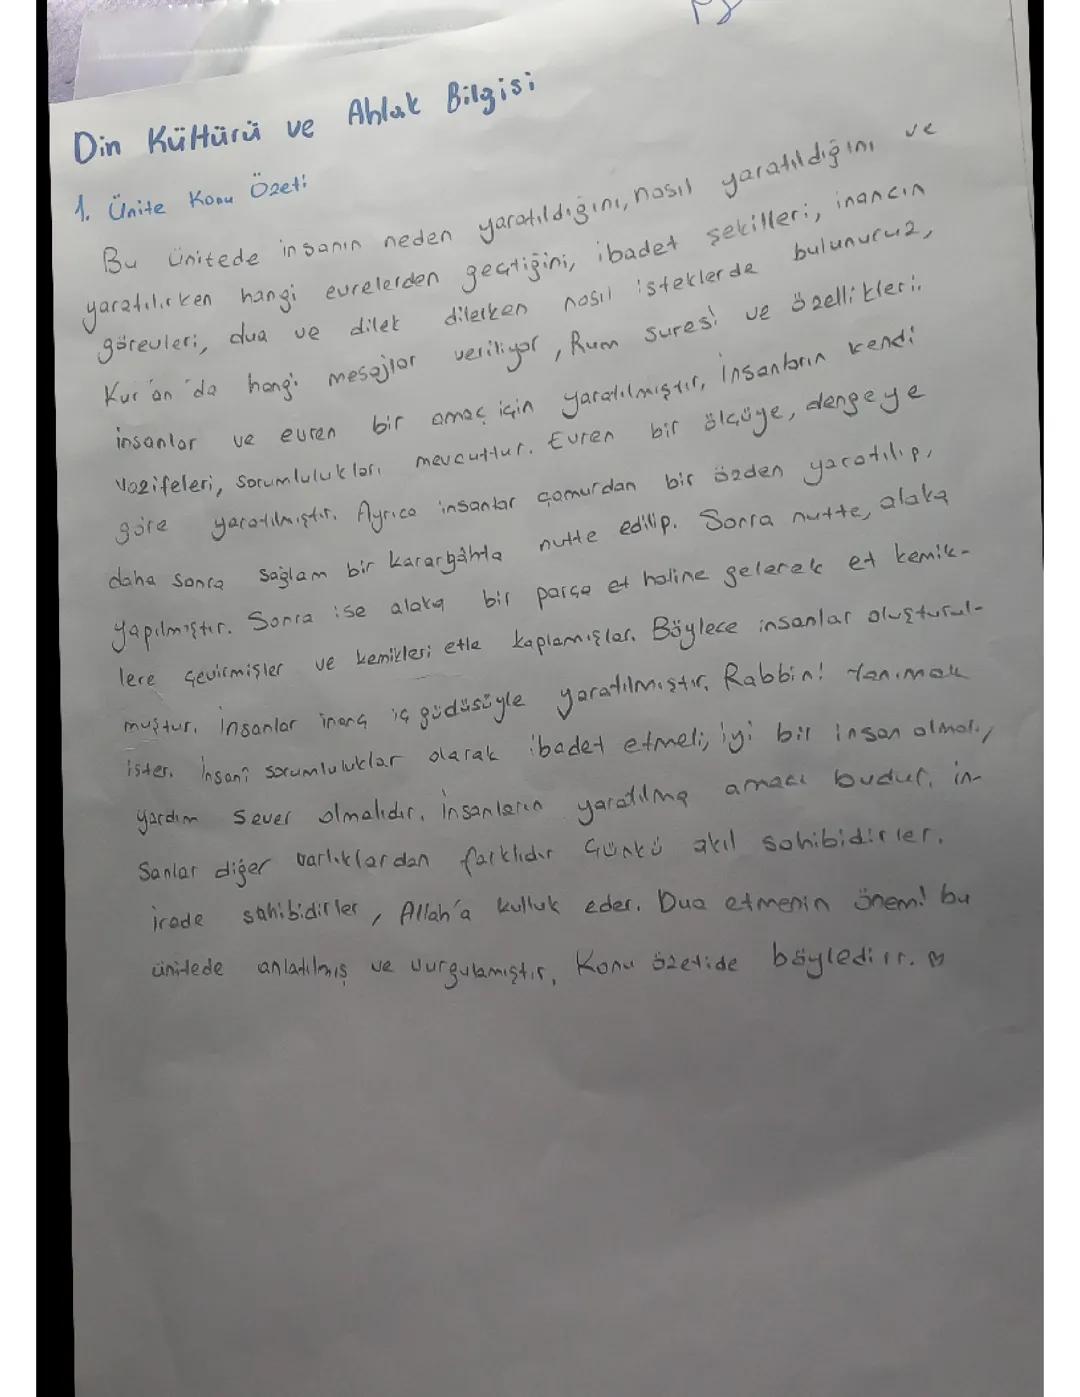 Din Kültürü ve Ahlak Bilgisi
1. Ünite Konu Özeti
Bu ünitede insanın neden yaratıldığını, nasıl yaratıldığını ve
yaratılırken hangi evrelerden geçtiğini, ibadet şekilleri, inancın
görevleri, dua ve dilek dilerken nasıl isteklerde bulunuruz,
Kur'an'da hangi mesajlar veriliyor, Rum suresi ve özellikleri.
insanlar ve evren bir amaç için yaratılmıştır, İnsanların kendi
vazifeleri, sorumlulukları mevcuttur. Evren bir ölçüye, dengeye
göre yaratılmıştır. Ayrıca insanlar çamurdan bir özden yaratılıp,
daha sonra sağlam bir karargâhta nutte edilip. Sonra nutte, alaka
yapılmıştır. Sonra ise alaka bir parça et haline gelerek et kemik-
lere çevirmişler ve kemikleri etle kaplamışlar. Böylece insanlar oluşturul-
muştur. İnsanlar inanç iç güdüsüyle yaratılmıştır. Rabbini tanımak
ister. İnsanî sorumluluklar olarak ibadet etmeli, iyi bir insan olmalı,
yardım sever olmalıdır. İnsanların yaratılma amacı budur. in-
sanlar diğer varlıklardan farklıdır Çünkü akıl sahibidirler.
irade sahibidirler, Allah'a kulluk eder. Dua etmenin önemi bu
ünitede anlatılmış ve vurgulamıştır. Konu özetide böyledirr. ♡